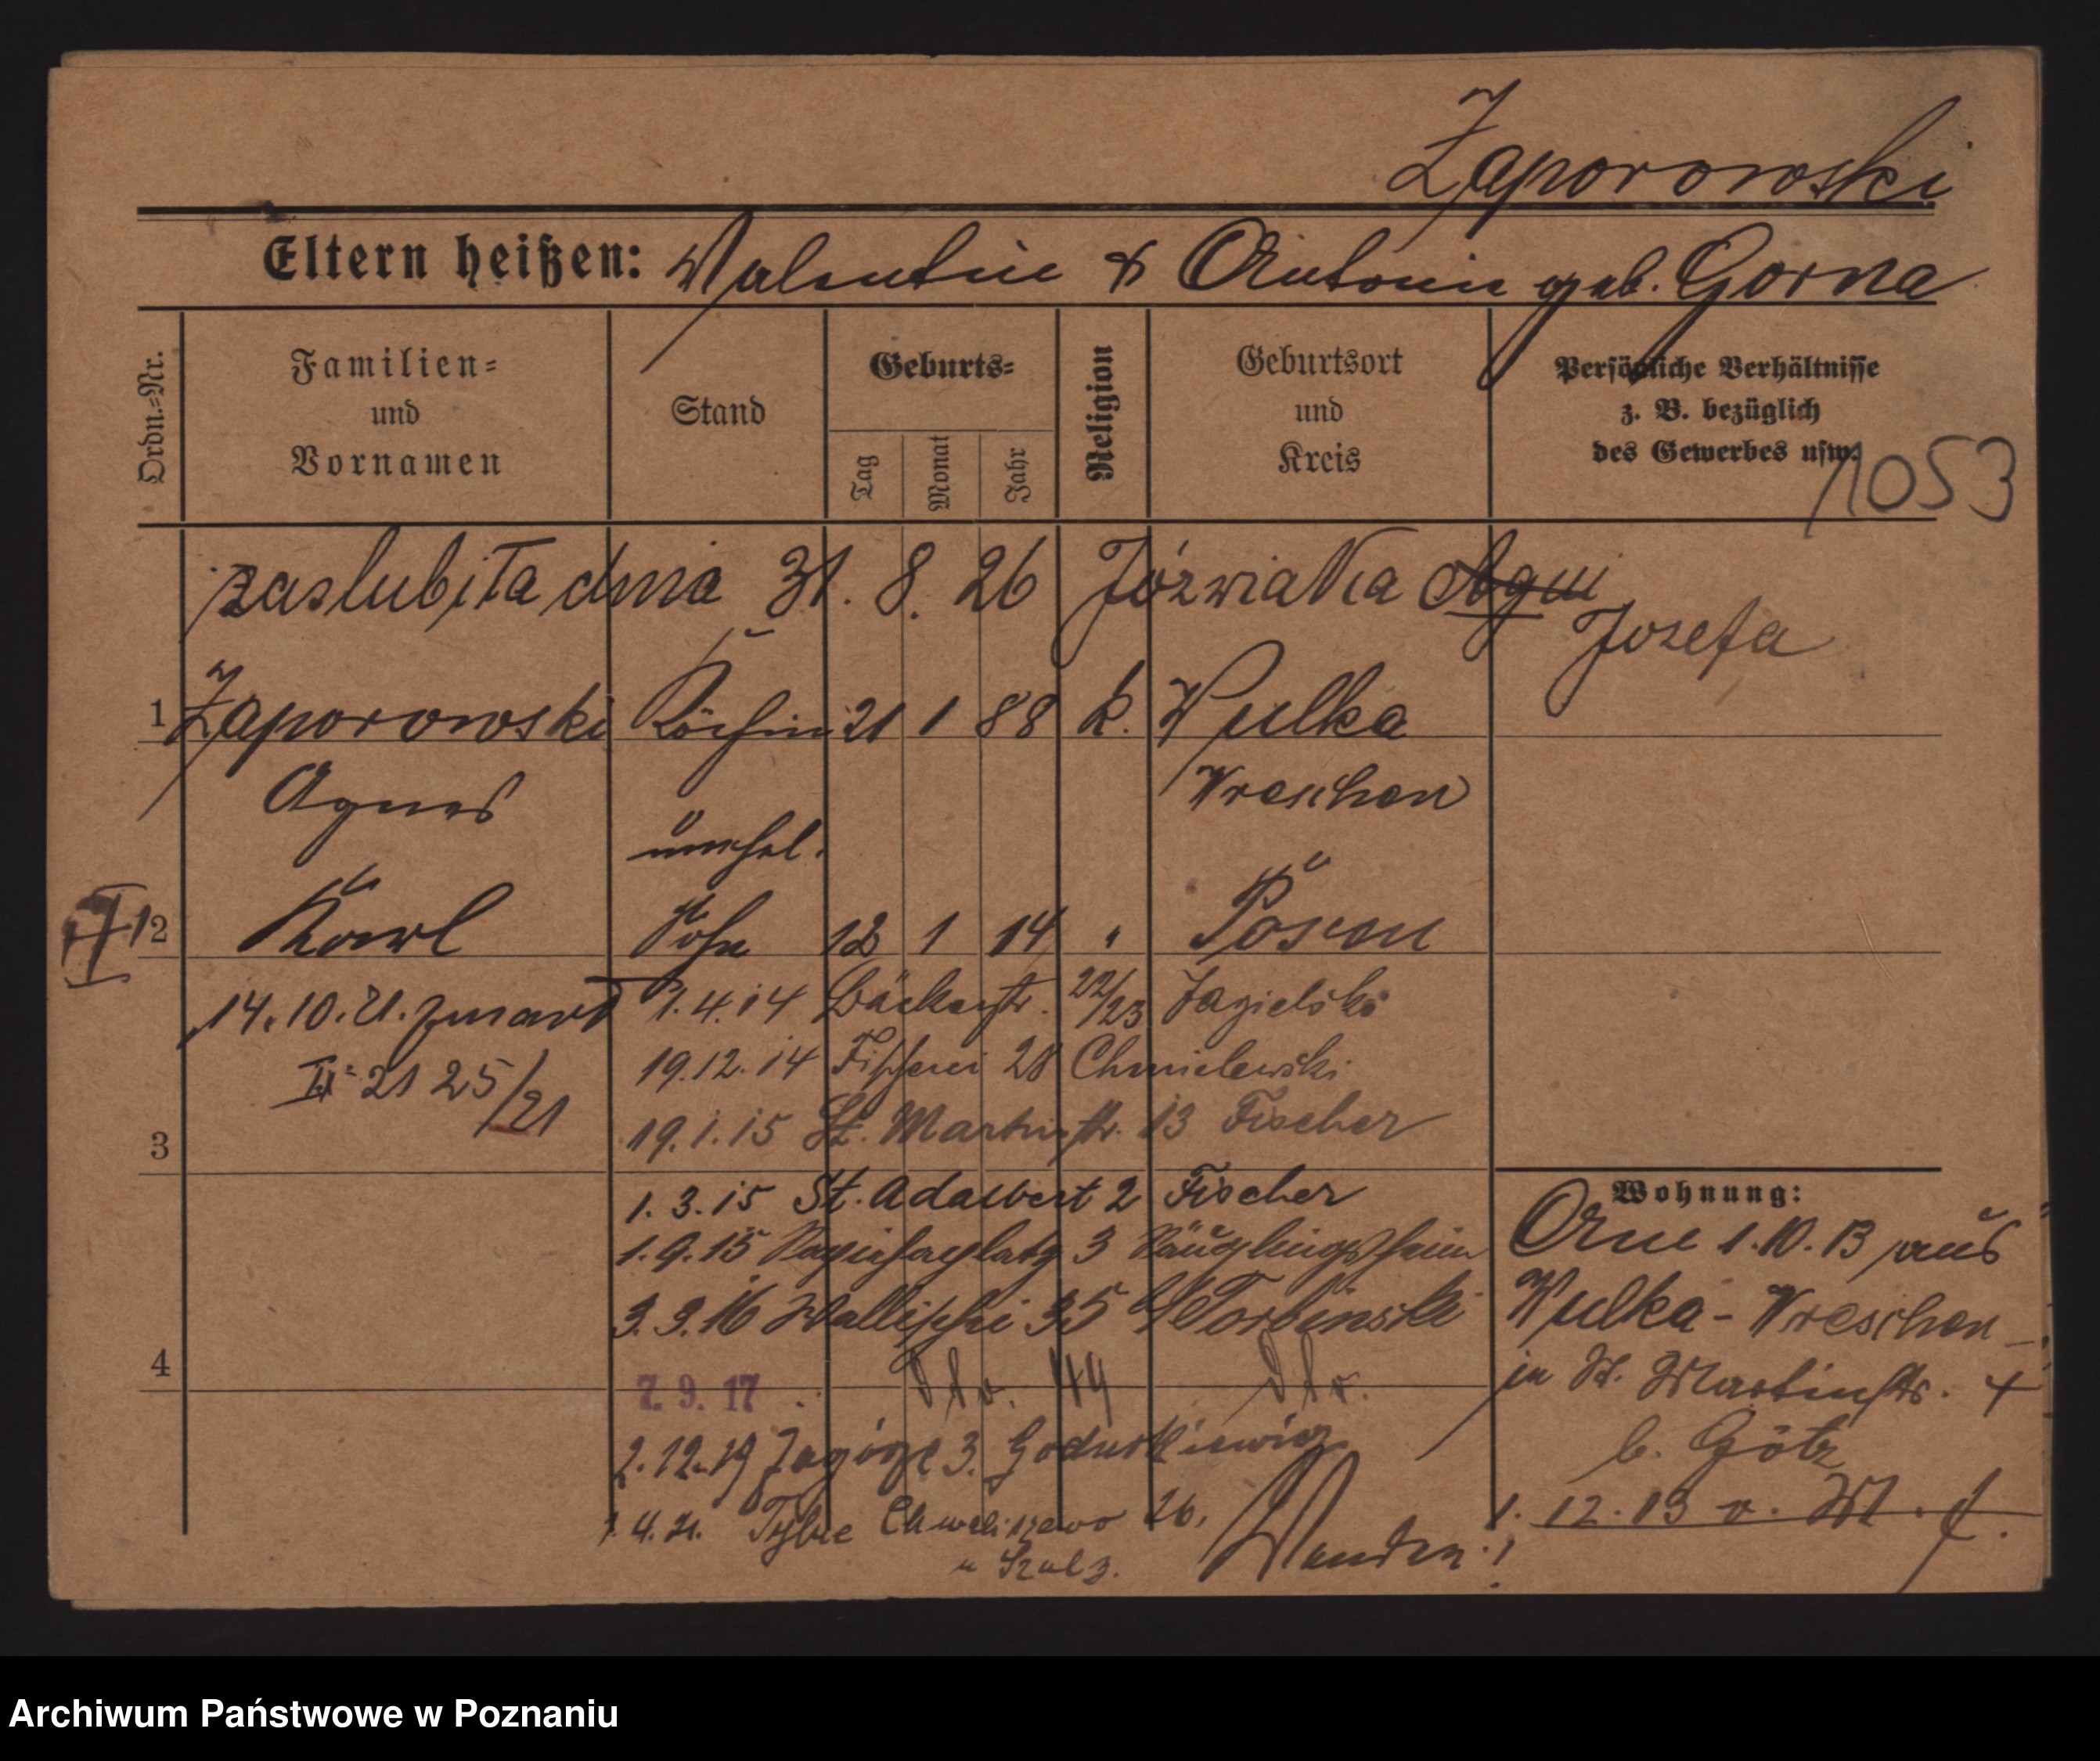 Zaporowski
Eltern heißen: Valentin & Antonin geb. Gorna
Ordn.=Nr.
Familien= und Vornamen
Stand
Geburts=
Tag
Monat
Jahr
Religion
Geburtsort und Kreis
Persönliche Verhältnisse z. B. bezüglich des Gewerbes usw.
1053
zaslubiła dnia 31. 8. 26 Józwiaka
Josefa
1 Zaporowski Köchin 21 1 88 k. Wulka
Agnes Wreschen
unehel.
2 Karl Sohn 12 1 14 " Posen
14.10.21. zmarł 1.4.14 Bäckerstr. 22/23 Jagielski
19.12.14 Fischerei 28 Chmielewski
II 21 25/21
3 19.1.15 St. Martinstr. 13 Fischer
1.3.15 St. Adalbert 2 Fischer
1.9.15 3 Säuglingsheim
3.3.16 Wallischei 35
4 7. 9. 17 dto. 44 dto.
2.12.19 Zagórze 3.
1.4.21. Tylne Chwaliszewo 26.
u Szulz.
Wenden!
Wohnung:
1.10.13 aus
Wulka - Wreschen
in St. Martinstr. 4
b. Götz
1. 12. 13 v.
Archiwum Państwowe w Poznaniu